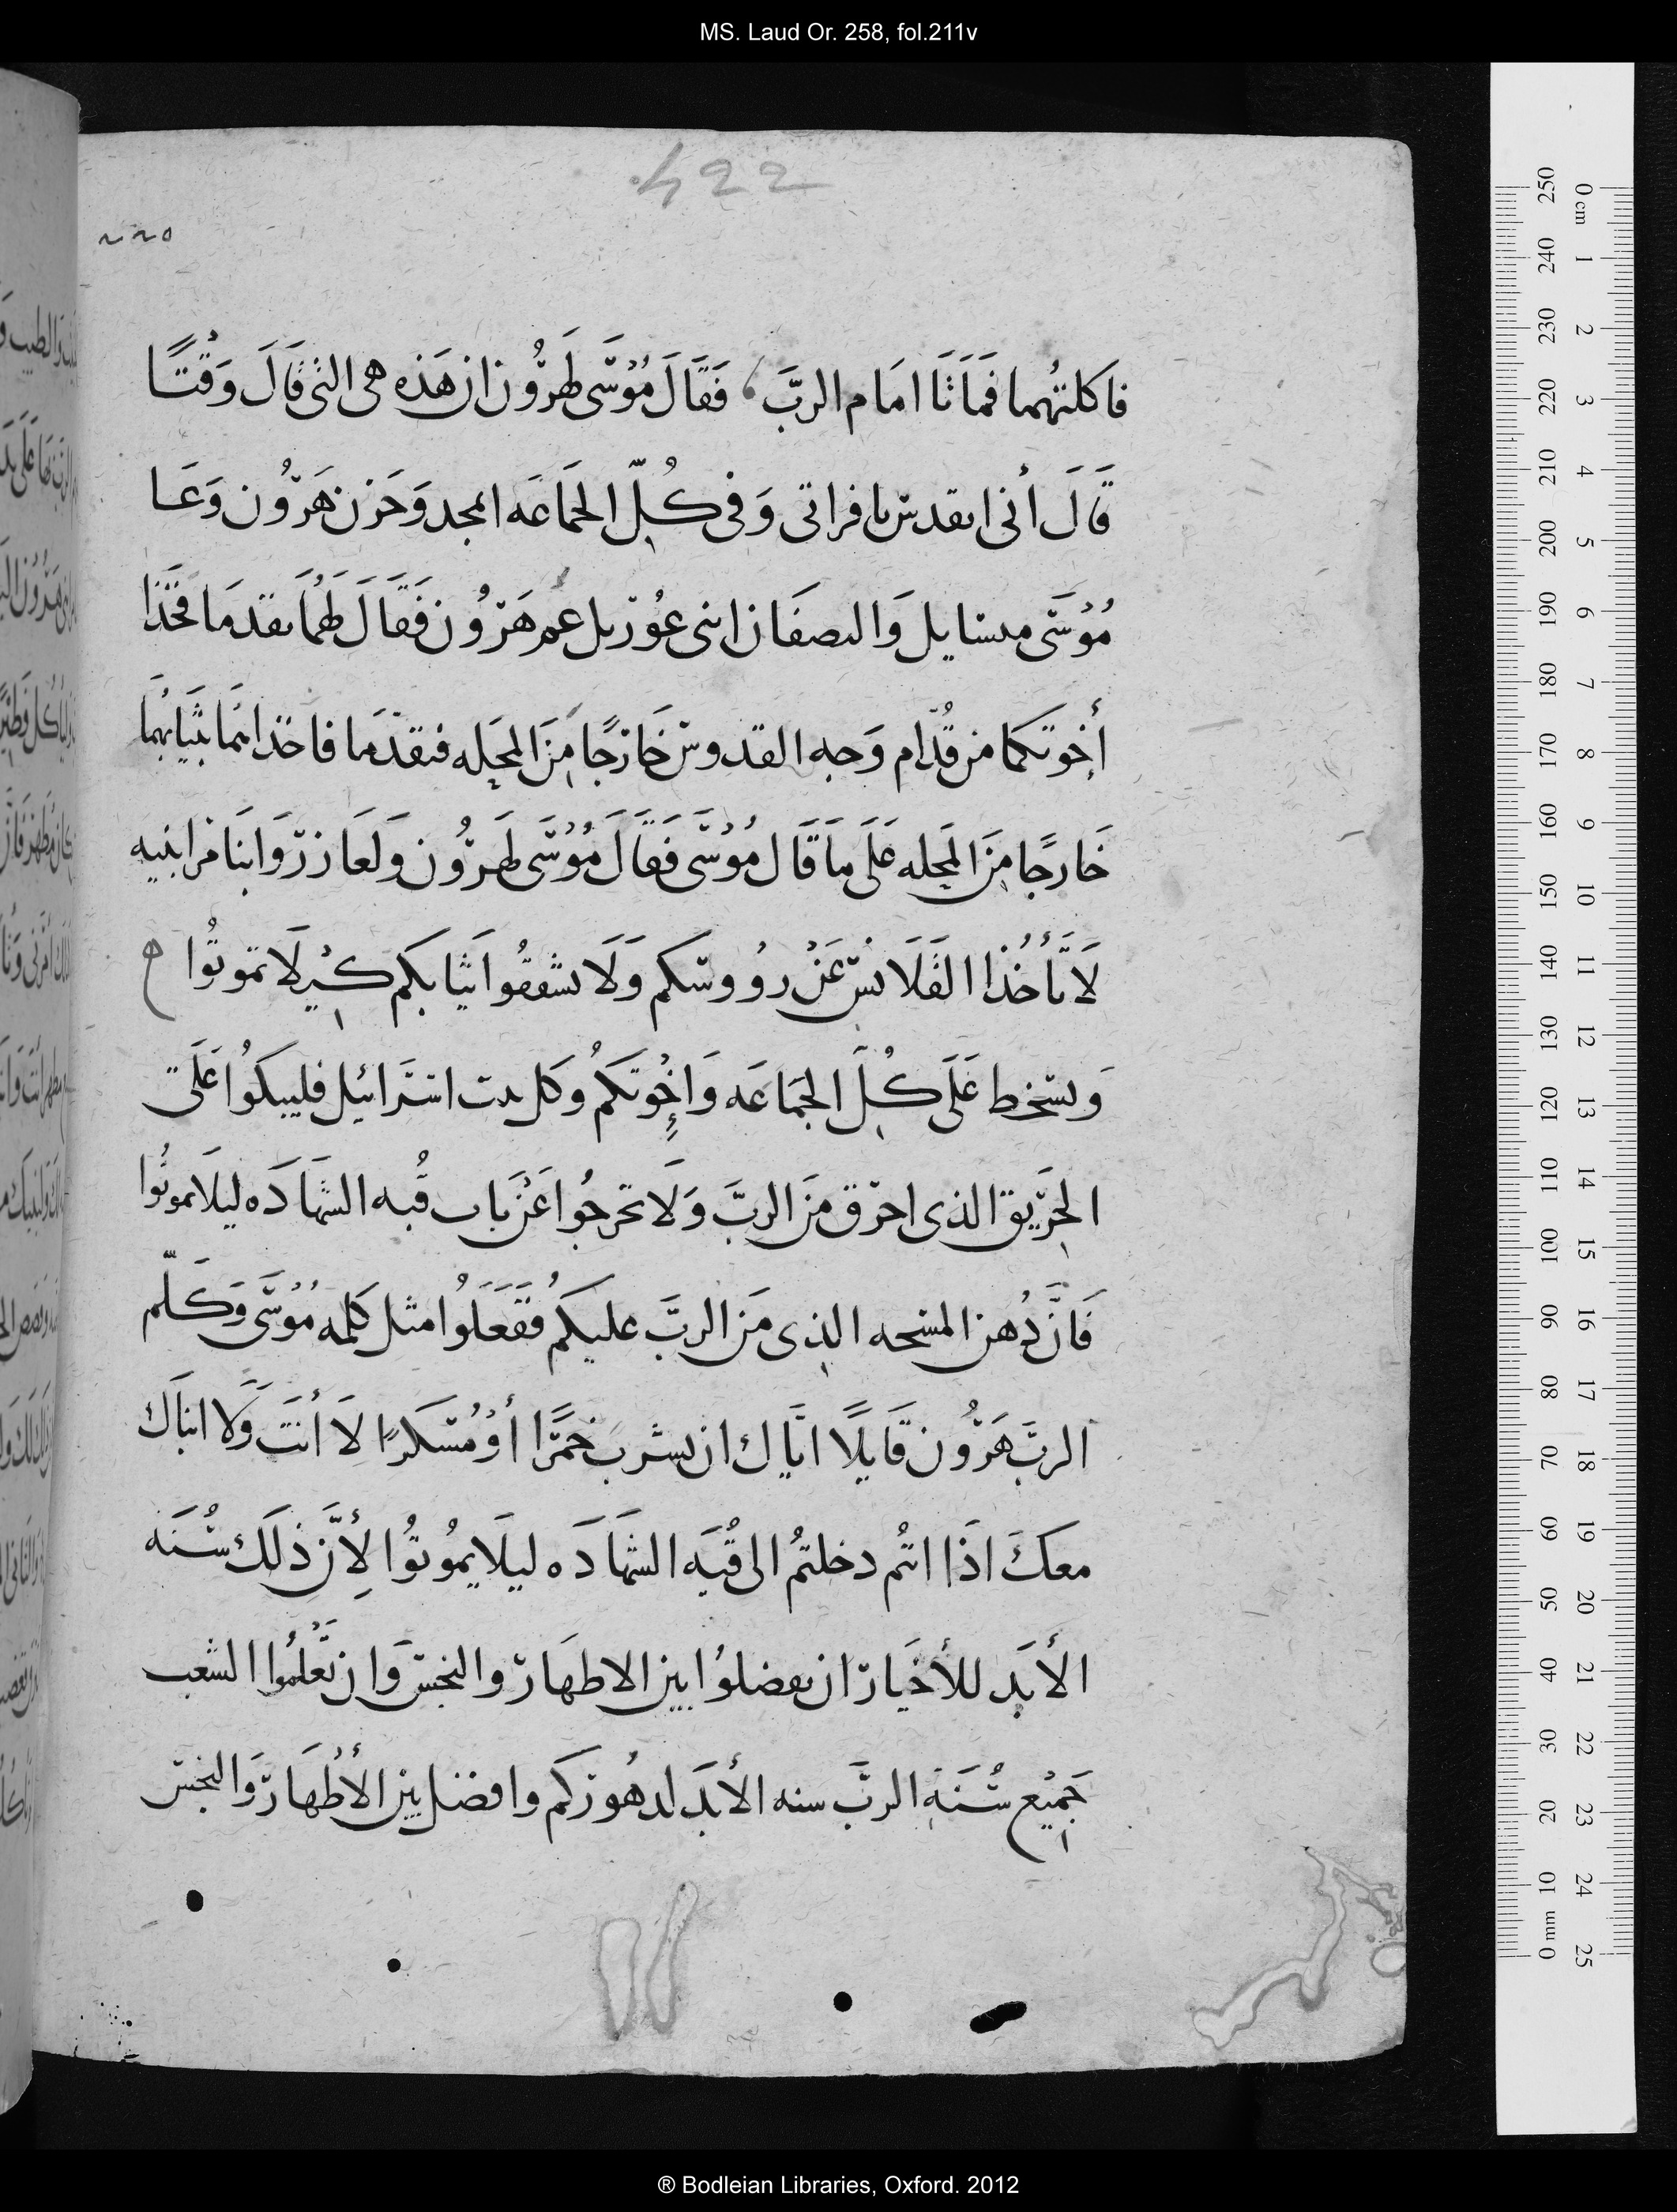 MS. Laud Or. 258, fol.211v
422
فاكلتهما فماتا امام الرب فقال موسى لهرون ان هذه هى التى قال وقتًا
قال أنى اتقدس بافراتى وفى كل الجماعه امجد وحزن هرون ودعا
موسى ميسايل والصفان ابنى عوزيل عم هرون فقال لهما تقدما فخذا
أخوتكما من قدام وجه القدوس خارجًا من المحله فتقدما فاخذاهما بثيابهما
خارجًا من المحله على ما قال موسى فقال موسى لهرون ولعازر وابنا من ابنيه
لا تأخذا القلانس عن رووسكم ولا تشققوا ثيابكم كي لا تموتوا
ويسخط على كل الجماعه واخوتكم وكل بيت اسرائيل فليبكوا على
الحريق الذى احرق من الرب ولا تخرجوا عن باب قبه الشهاده ليلا تموتوا
فان دهن المسحه الذى من الرب عليكم ففعلوا مثل كلمه موسى وكلم
الرب هرون قايلًا اياك ان تشرب خمرًا أو مسكرًا لا أنت ولا ابناك
معك اذا انتم دخلتم الى قبه الشهاده ليلا تموتوا لأن ذلك سنه
الأبد للأخيار ان تفضلوا بين الاطهار والنجس وان تعلموا الشعب
جميع سنه الرب سنه الأبد لدهوركم وافضل بين الأطهار والنجس
250 240 230 220 210 200 190 180 170 160 150 140 130 120 110 100 90 80 70 60 50 40 30 20 10 0 mm
0 cm 1 2 3 4 5 6 7 8 9 10 11 12 13 14 15 16 17 18 19 20 21 22 23 24 25
® Bodleian Libraries, Oxford. 2012